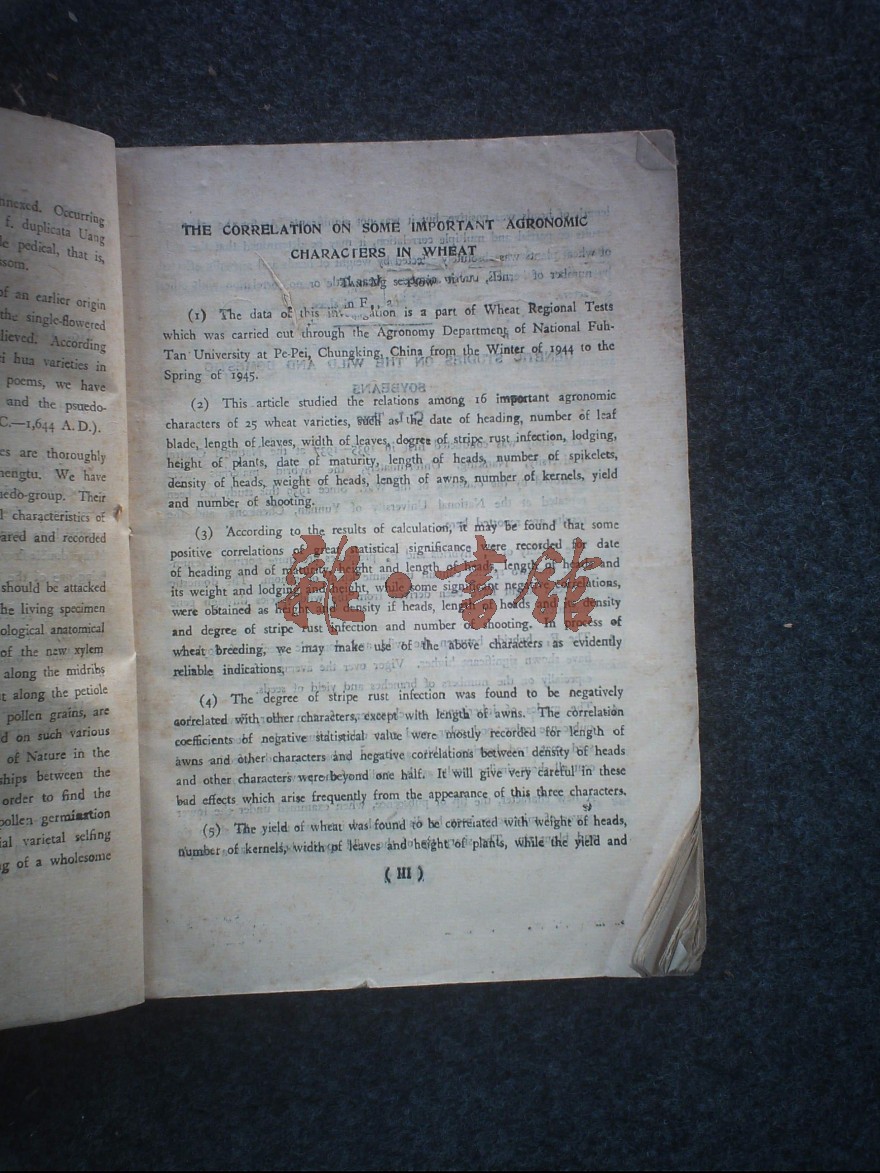 nnexed. Occurring
f. duplicata Uang
le pedical, that is,
ssom.
of an earlier origin
the single-flowered
lieved. According
ei hua varieties in
poems, we have
and the psuedo-
C.—1,644 A. D.).
es are thoroughly
hengtu. We have
uedo-group. Their
l characteristics of
ared and recorded
should be attacked
he living specimen
ological anatomical
of the new xylem
along the midribs
t along the petiole
pollen grains, are
d on such various
of Nature in the
ships between the
order to find the
pollen germination
ial varietal selfing
g of a wholesome
THE CORRELATION ON SOME IMPORTANT AGRONOMIC
CHARACTERS IN WHEAT
(1) The data of this is a part of Wheat Regional Tests
which was carried cut through the Agronomy Department of National Fuh-
Tan University at Pe-Pei, Chungking, China from the Winter of 1944 to the
Spring of 1945.
(2) This article studied the relations among 16 important agronomic
characters of 25 wheat varieties, such as the date of heading, number of leaf
blade, length of leaves, width of leaves, degree of stripe rust infection, lodging,
height of plants, date of maturity, length of heads, number of spikelets,
density of heads, weight of heads, length of awns, number of kernels, yield
and number of shooting.
(3) According to the results of calculation, it may be found that some
positive correlations of great statistical significance were recorded for date
of heading and of maturity, height and length of heads, length of heads and
its weight and lodging and height, while some significant negative correlations,
were obtained as height and density if heads, length of heads and its density
and degree of stripe rust infection and number of shooting. In process of
wheat breeding, we may make use of the above characters as evidently
reliable indications.
(4) The degree of stripe rust infection was found to be negatively
correlated with other characters, except with length of awns. The correlation
coefficients of negative statistical value were mostly recorded for length of
awns and other characters and negative correlations between density of heads
and other characters were beyond one half. It will give very careful in these
bad effects which arise frequently from the appearance of this three characters.
(5) The yield of wheat was found to be correlated with weight of heads,
number of kernels, width of leaves and height of plants, while the yield and
( III )
雜·書館